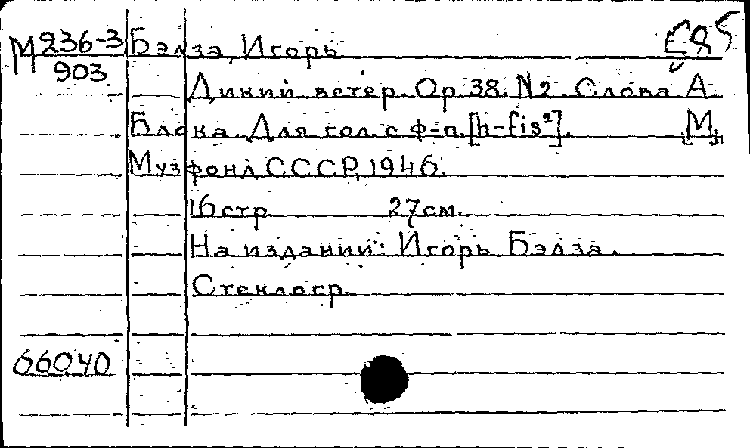 М 236-3 Бэлза, Игорь
903
Дикий ветер. Op. 38. N2. Слова А.
Блока. Для гол. с ф-п. [h-fis²]. [М.],
Музфонд СССР, 1946.
16 стр. 27 см.
На издании: Игорь Бэлза.
Стеклогр.
66040